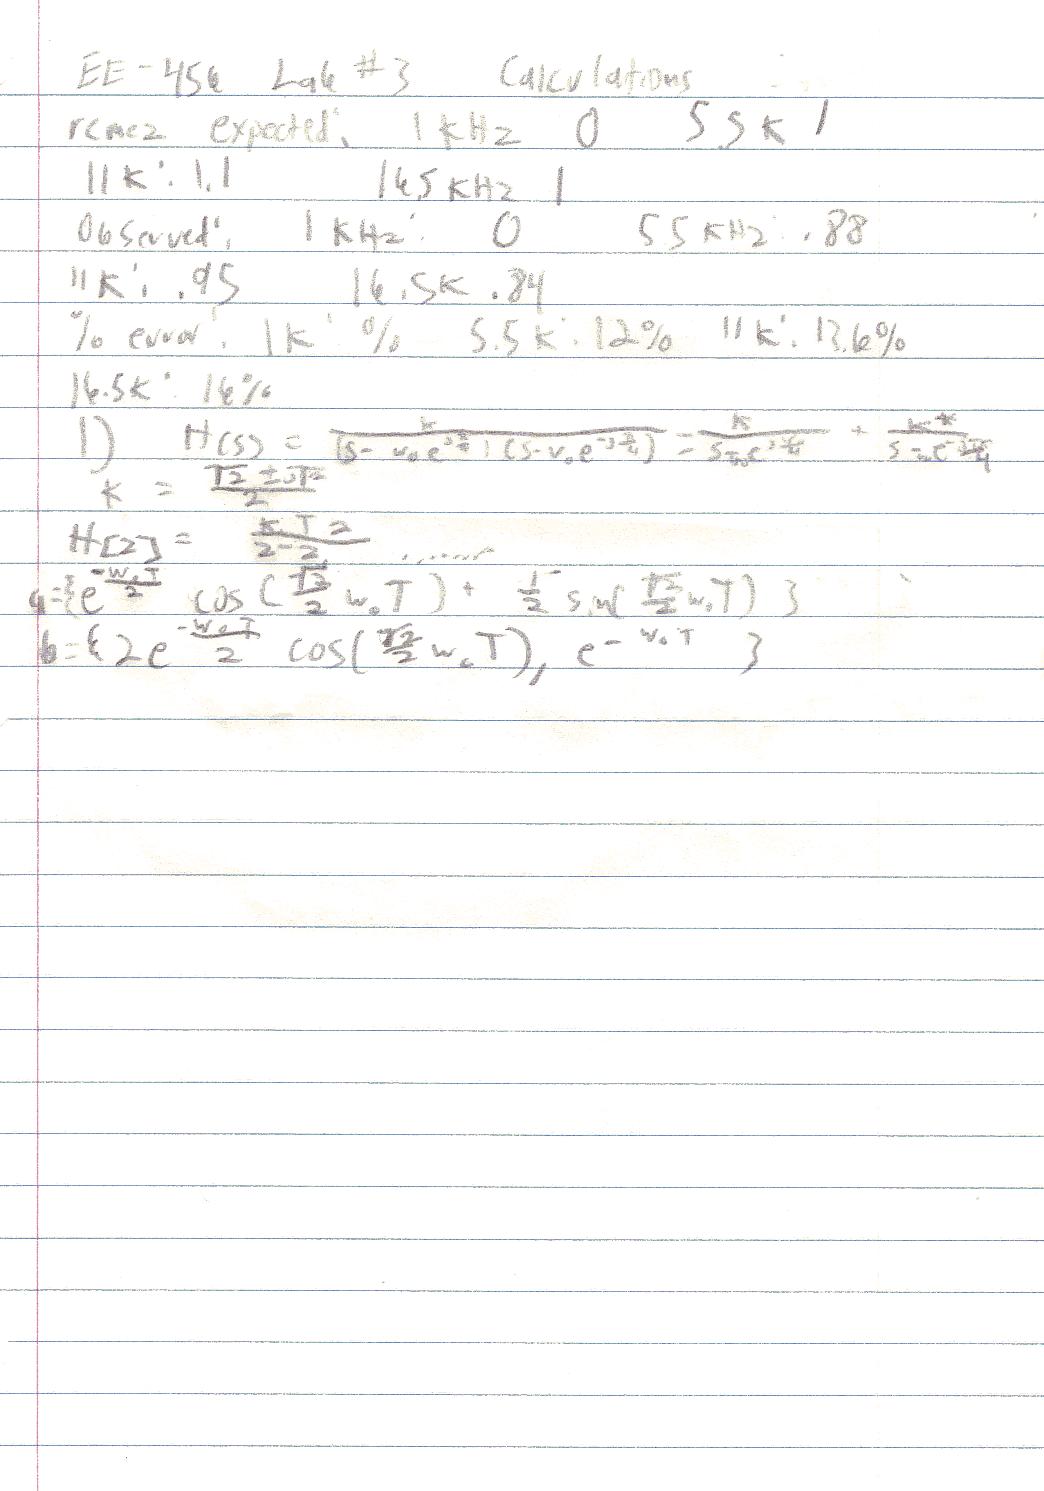 EE-456 Lab #3 Calculations
remez expected: 1 kHz 0 5.5K 1
11K: 1.1 16.5 KHz 1
Observed: 1 KHz: 0 5.5 KHz: .88
11K: .95 16.5K .84
% error: 1K: % 5.5K: 12% 11K: 13.6%
16.5K: 16%
1) H(s) = K / (s - w₀e^(jπ/4)) (s - w₀e^(-jπ/4)) = K / e^(jπ/4) + K* / e^(-jπ/4)
K = (√2 ± j√2) / 2
H[z] = K T z / z - z .......
a = {e^(-w₀T/2) cos(√2/2 w₀T) + 1/2 sin(√2/2 w₀T) }
b = {2e^(-w₀T/2) cos(√2/2 w₀T), e^(-w₀T) }